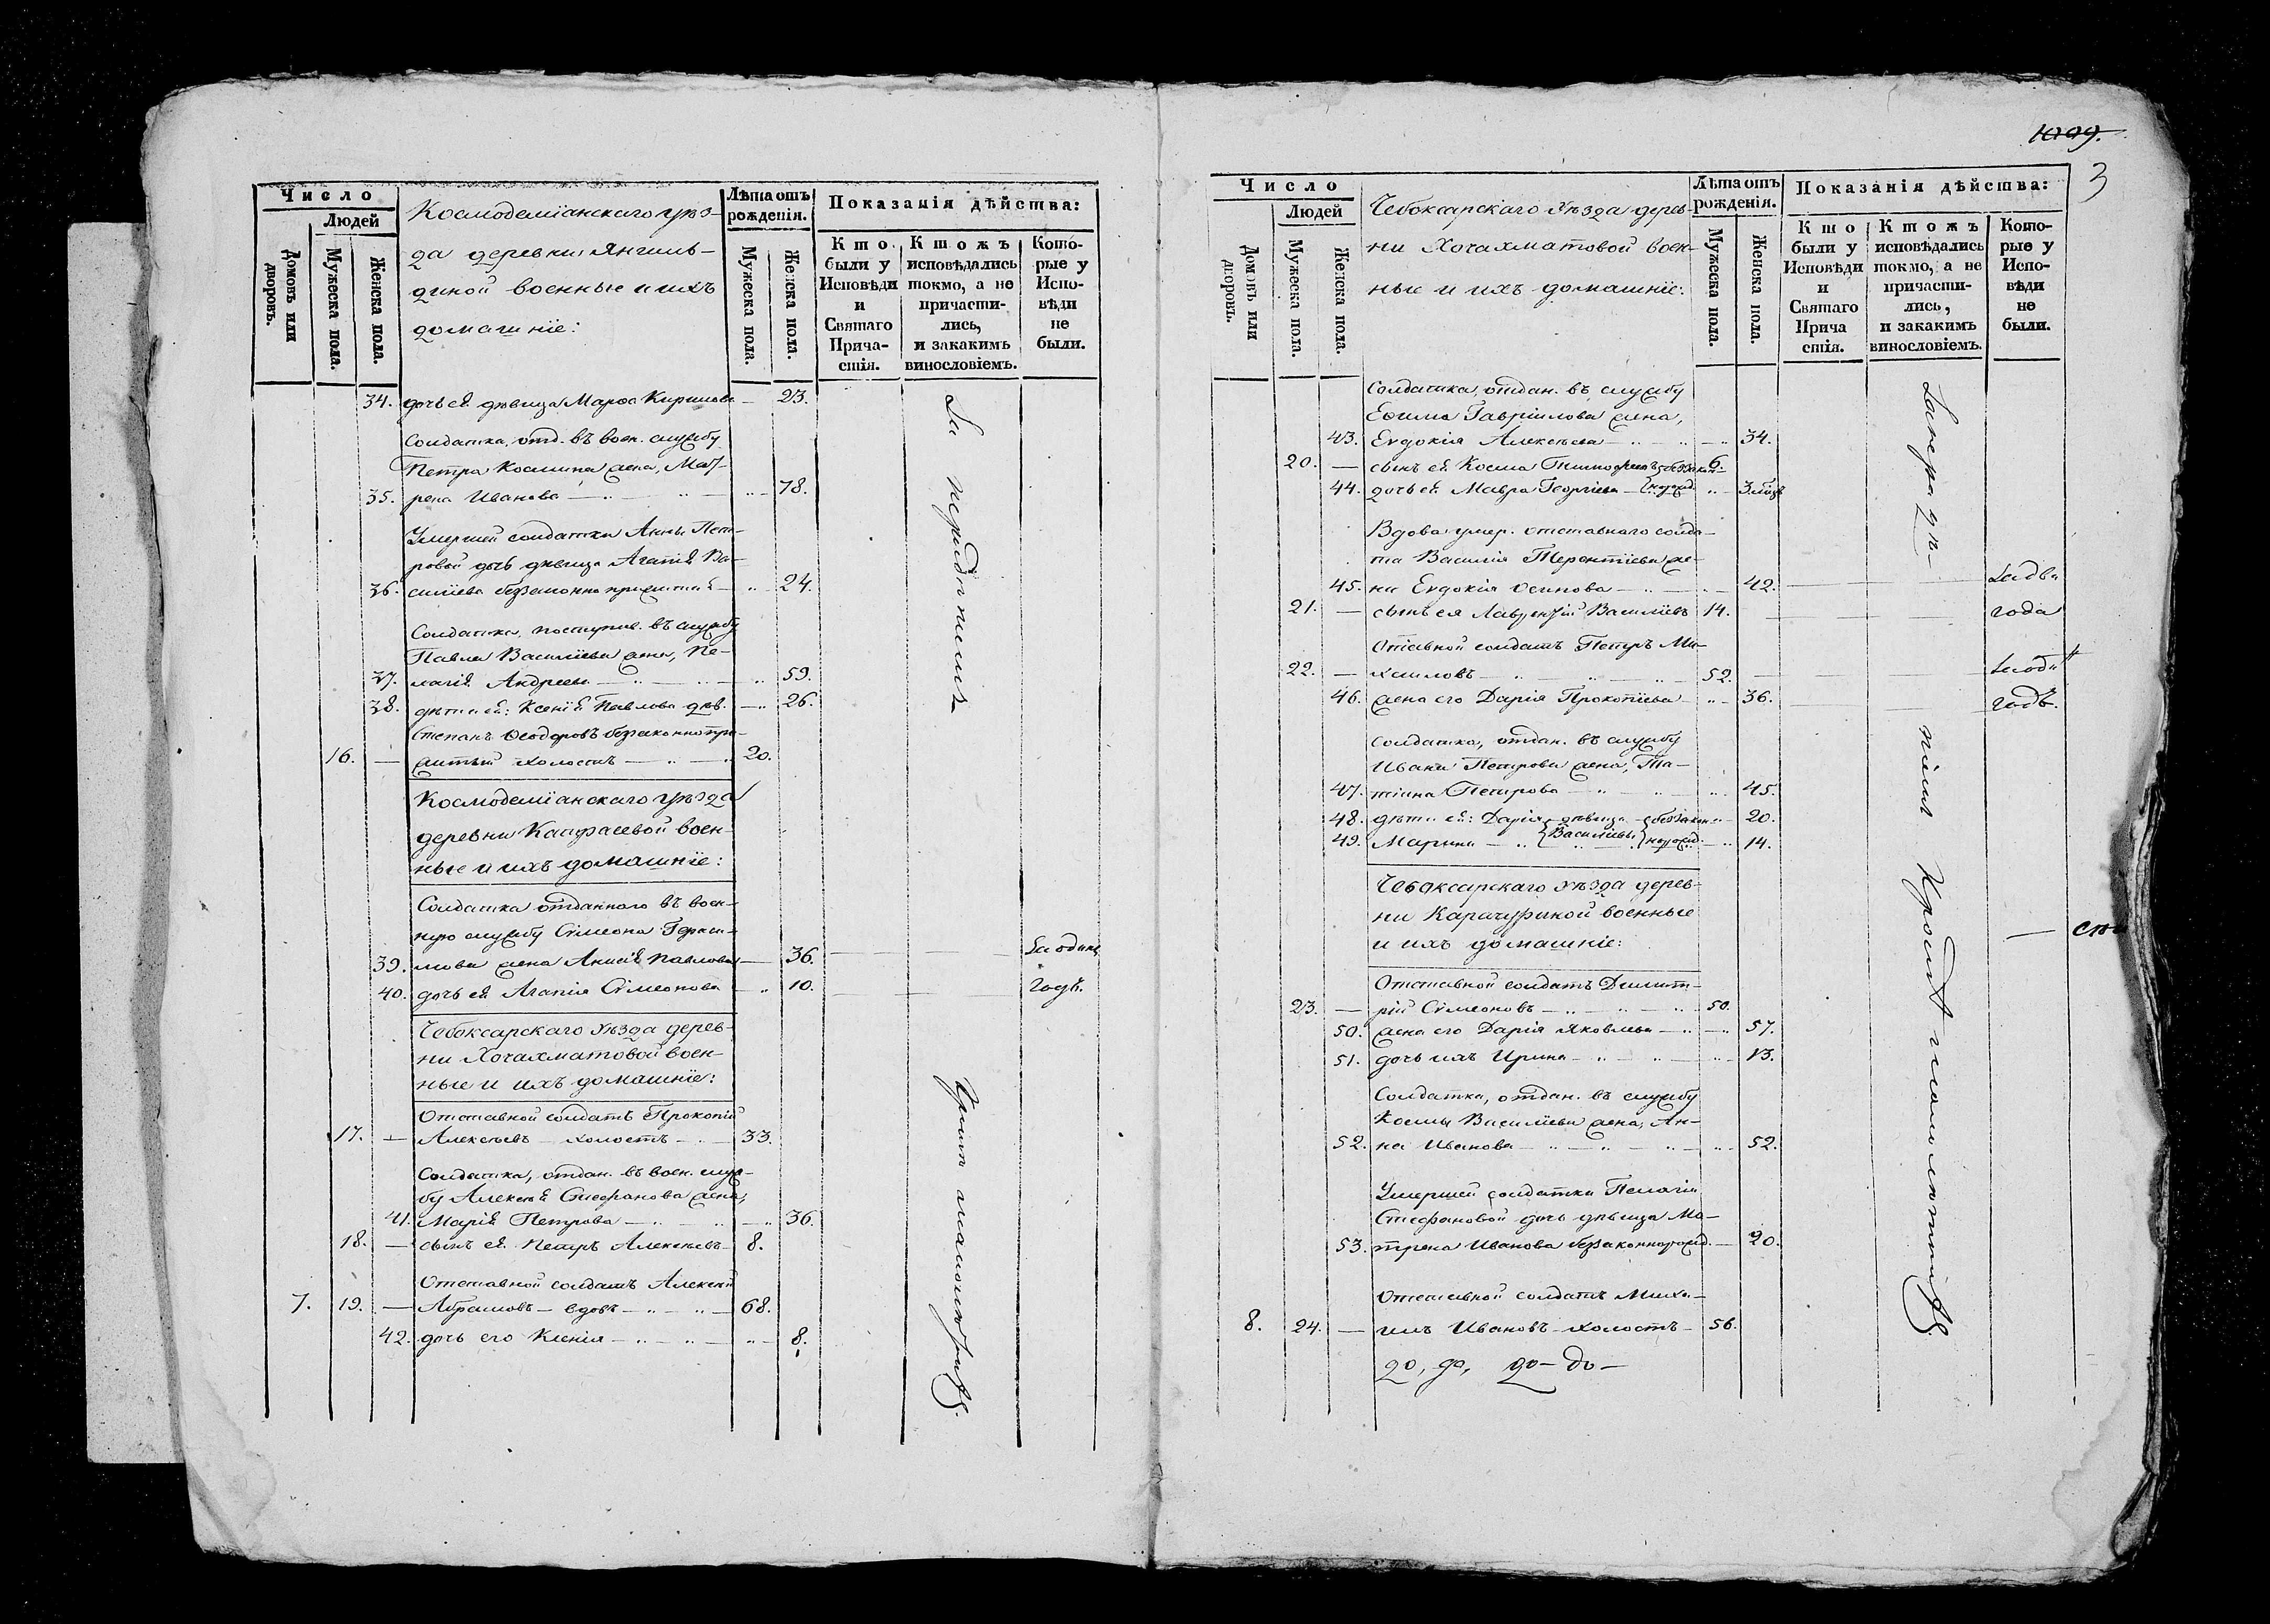 Число
Людей
Домовъ или дворовъ.
Мужеска пола.
Женска пола.
Космодеміанскаго уѣз-
да деревни Янгиль-
диной военные и ихъ
домашніе:
Лѣта отъ рожденія.
Мужеска пола.
Женска пола.
Показанія дѣйства:
Кто были у Исповѣди и Святаго Прича-стія.
Ктожъ исповѣдались токмо, а не причасти-лись, и закакимъ винословіемъ.
Кото-рые у Испо-вѣди не были.
34. дочь ея дѣвица Марѳа Кирилова — 23.
Солдатка, отд. въ воен. службу
Петра Космина жена, Мат-
35. рена Иванова — 78.
Умершей солдатки Анны Пет-
ровой дочь дѣвица Агатія Ва-
36. силіева беззаконно прижитая — 24.
Солдатка, поступив. въ службу
Павла Василіева жена, Пе-
37. лагія Андреева — 59.
38. дѣти ея: Ксенія Павлова дѣв. — 26.
Степанъ Ѳеодоровъ беззаконнопри-
16. — житый холостъ — 20.
Космодеміанскаго уѣзда
деревни воен-
ные и ихъ домашніе:
Солдатка отданнаго въ воен-
ную службу Сѵмеона Гераси-
39. мова жена Анисія Павлова — 36. — За одинъ
40. дочь ея Агапія Сѵмеонова — 10. — годъ.
Чебоксарскаго уѣзда дерев-
ни Хочахматовой воен-
ные и ихъ домашніе:
Отставной солдатъ Прокопій
17. — Алексѣевъ — холостъ — 33.
Солдатка, отдан. въ воен. служ-
бу Алексѣя Стефанова жена,
41. Марія Петрова — 36.
18. — сынъ ея Петръ Алексѣевъ — 8.
Отставной солдатъ Алексѣй
7. 19. — Абрамовъ — вдовъ — 68.
42. дочь его Ксенія — 8.
1099.
3
Число
Людей
Домовъ или дворовъ.
Мужеска пола.
Женска пола.
Чебоксарскаго Уѣзда дерев-
ни Хочахматовой воен-
ные и ихъ домашніе:
Лѣта отъ рожденія.
Мужеска пола.
Женска пола.
Показанія дѣйства:
Кто были у Исповѣди и Святаго Прича стія.
Ктожъ исповѣдались токмо, а не причасти-лись, и закакимъ винословіемъ.
Кото-рые у Испо-вѣди не были.
Солдатка, отдан. въ службу
Ефима Гавріилова жена,
43. Евдокія Алексѣева — 34.
20. — сынъ ея Косма Тимофеевъ 6.
44. дочь ея Мавра Георгіева — 3
Вдова умер. отставнаго солда-
та Василія Терентіева же-
45. на Евдокія Осипова — 42. — За два
21. — сынъ ея Лаврентій Василіевъ 14. — года
Отставной солдатъ Петръ Ми-
22. — хаиловъ — 52.
46. жена его Дарія Прокопіева — 36. — годъ.
Солдатка, отдан. въ службу
Ивана Петрова жена, Та-
47. тіана Петрова — 45.
48. дѣти ея: Дарія — дѣвица — беззакон- — 20.
49. Марина — Василіевы норожд. — 14.
Чебоксарскаго Уѣзда дерев-
ни Карачуриной военные
и ихъ домашніе:
Отставной солдатъ Димит-
23. — рій Сѵмеоновъ — 50.
50. жена его Дарія Яковлева — 57.
51. дочь ихъ Ирина — 13.
Солдатка, отдан. въ службу
Космы Василіева жена, Ан-
52. на Иванова — 52.
Умершей солдатки Пелагіи
Стефановой дочь дѣвица Ма-
53. трена Иванова беззаконнорожд. — 20.
Отставной солдатъ Миха-
8. 24. — илъ Ивановъ — холостъ — 56.